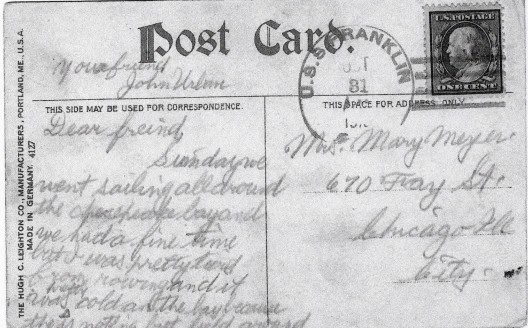 Post Card.
U.S. POSTAGE
ONE CENT
U.S.S. FRANKLIN
OCT
31
your friend
John Urban
THIS SIDE MAY BE USED FOR CORRESPONDENCE.
THIS SPACE FOR ADDRESS ONLY
THE HUGH C. LEIGHTON CO., MANUFACTURERS, PORTLAND, ME., U.S.A.
MADE IN GERMANY. 4127
Dear freind
Sunday we
went sailing all around
the chesepeake bay and
we had a fine time
but I was pretty tired
from rowing and it
was cold on the bay because
Mary Meyers
670 St.
Chicago Ill
City